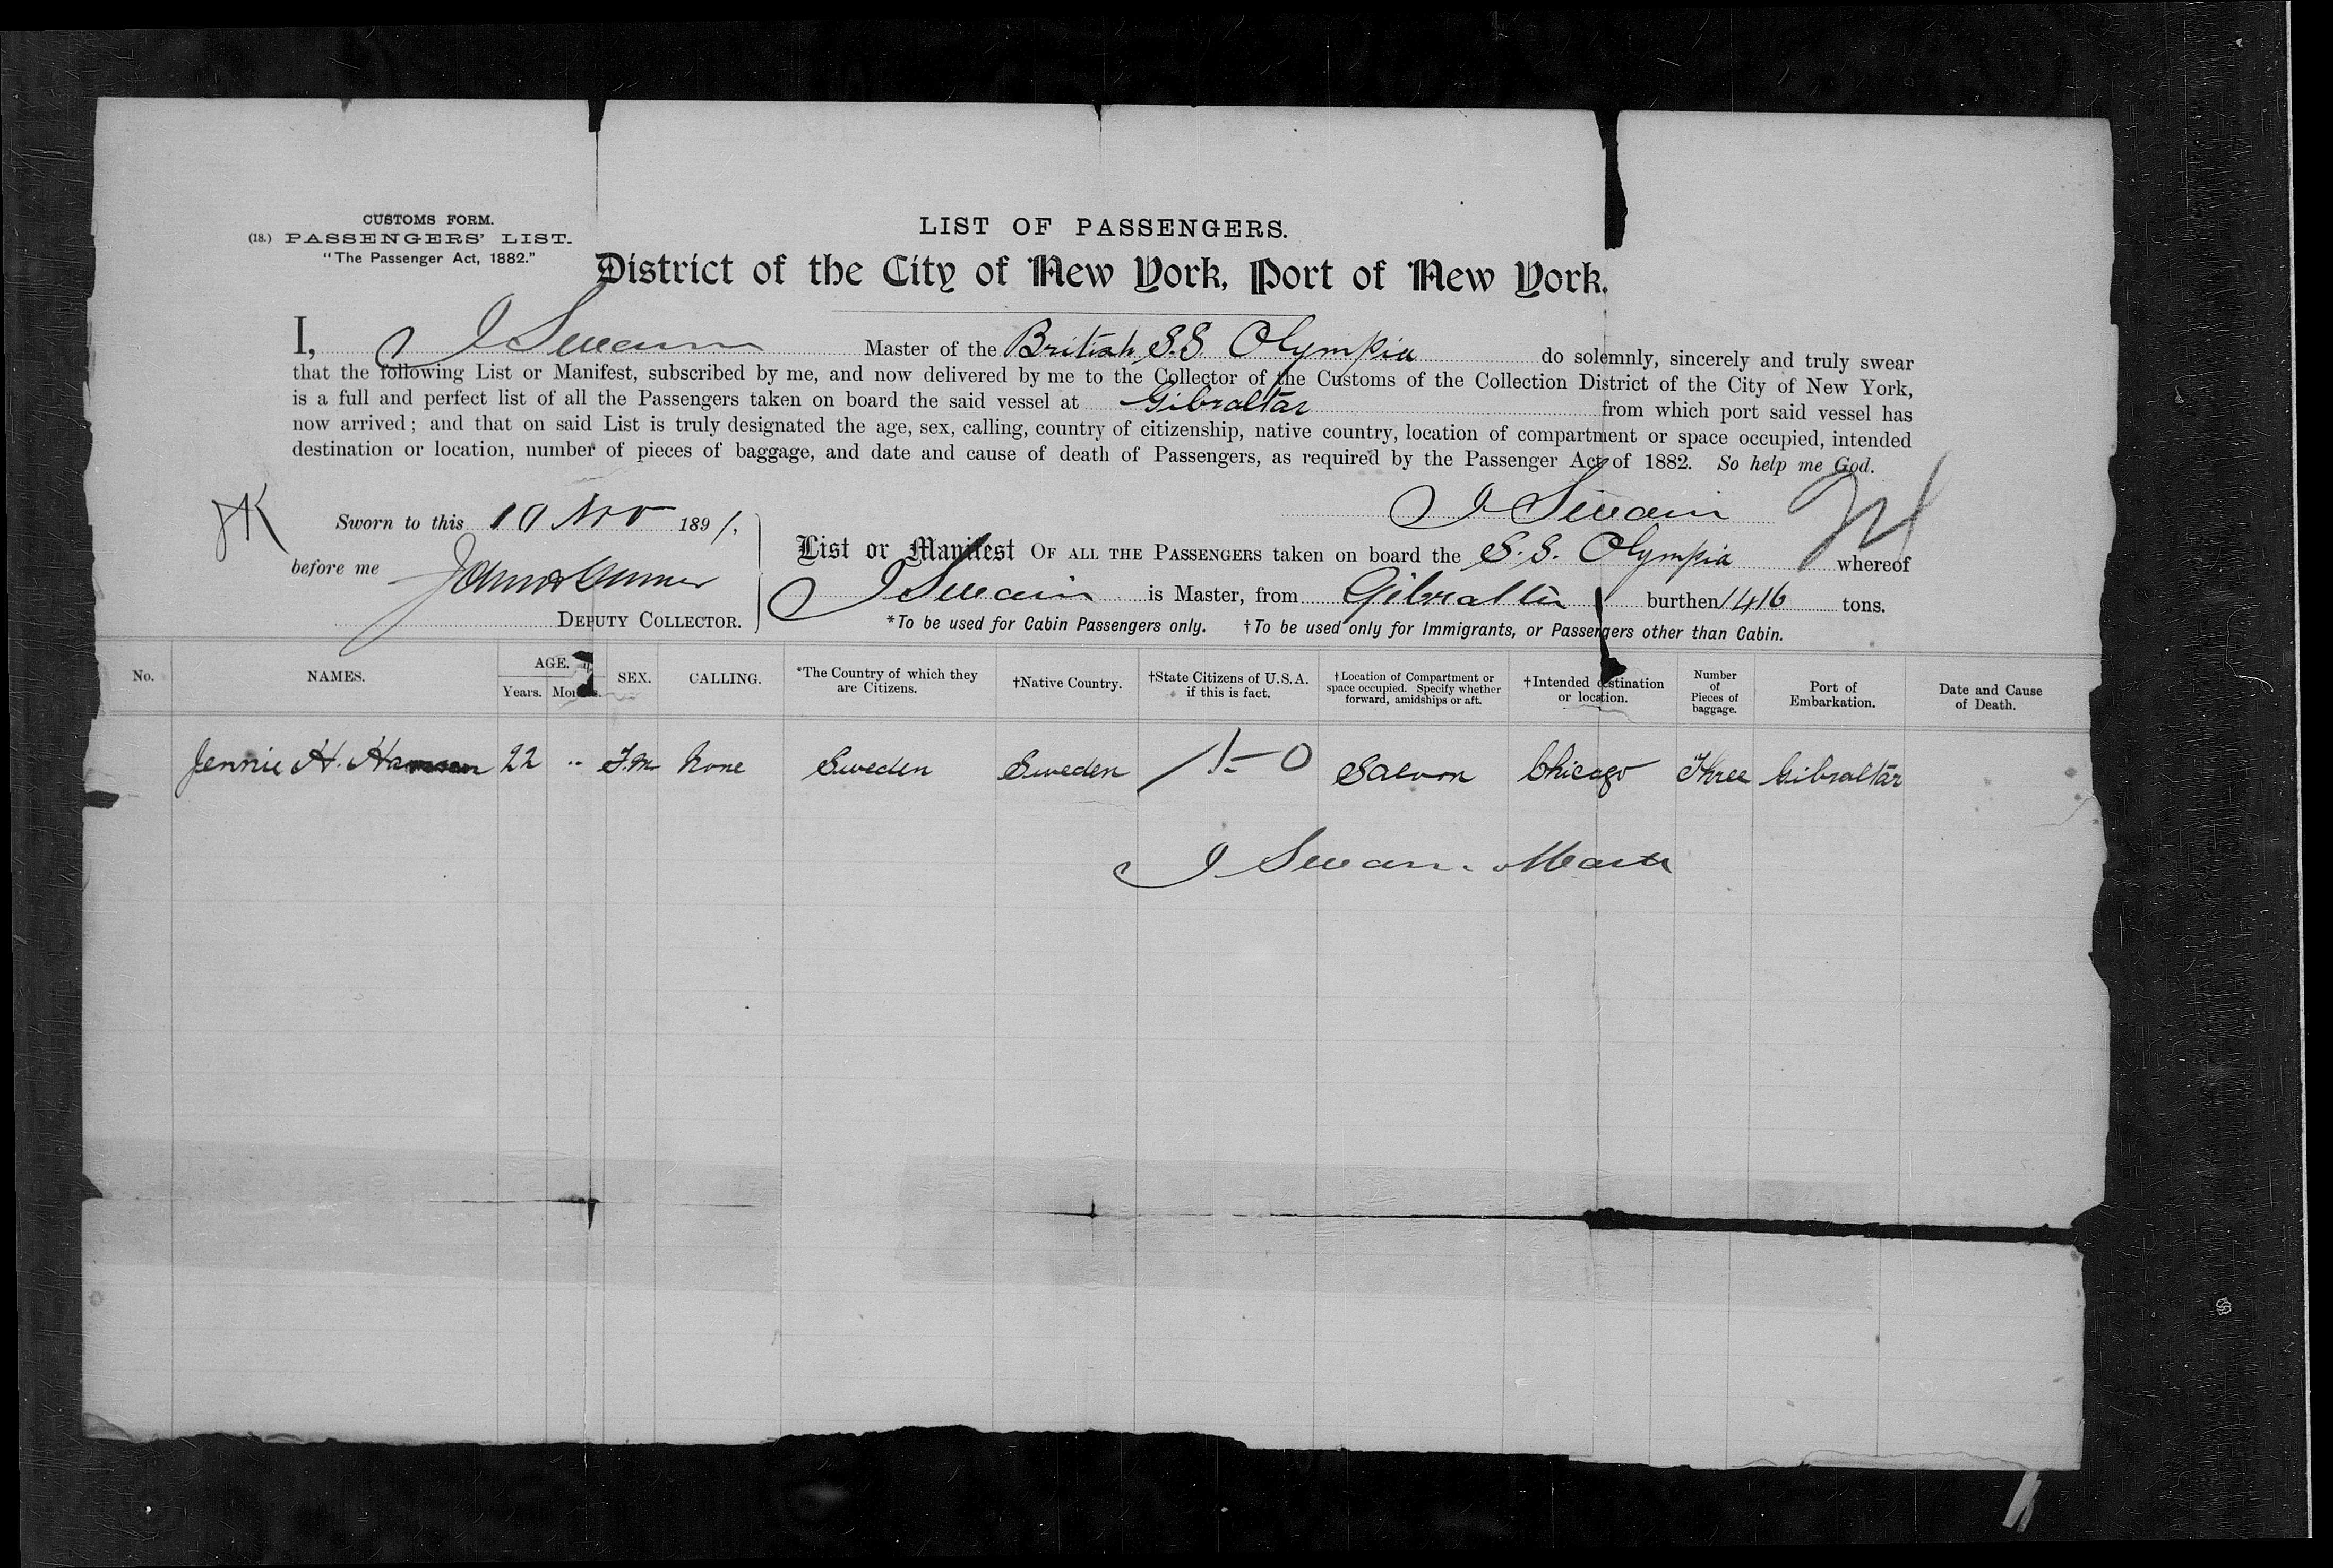 CUSTOMS FORM.
(18.) PASSENGERS' LIST.
"The Passenger Act, 1882."
LIST OF PASSENGERS.
District of the City of New York, Port of New York.
I, J Swain Master of the British S.S. Olympia do solemnly, sincerely and truly swear
that the following List or Manifest, subscribed by me, and now delivered by me to the Collector of the Customs of the Collection District of the City of New York,
is a full and perfect list of all the Passengers taken on board the said vessel at Gibraltar from which port said vessel has
now arrived; and that on said List is truly designated the age, sex, calling, country of citizenship, native country, location of compartment or space occupied, intended
destination or location, number of pieces of baggage, and date and cause of death of Passengers, as required by the Passenger Act of 1882. So help me God.
J Swain
Sworn to this 10 Nov 1891.
before me
DEPUTY COLLECTOR.
List or Manifest OF ALL THE PASSENGERS taken on board the S.S. Olympia whereof
J Swain is Master, from Gibraltar burthen 1416 tons.
*To be used for Cabin Passengers only. †To be used only for Immigrants, or Passengers other than Cabin.
No. NAMES. AGE. Years. Months. SEX. CALLING. *The Country of which they are Citizens. †Native Country. †State Citizens of U.S.A. if this is fact. †Location of Compartment or space occupied. Specify whether forward, amidships or aft. †Intended destination or location. Number of Pieces of baggage. Port of Embarkation. Date and Cause of Death.
Jennie H. 22 " None Sweden Sweden Saloon Chicago Three Gibraltar
J Swain Master